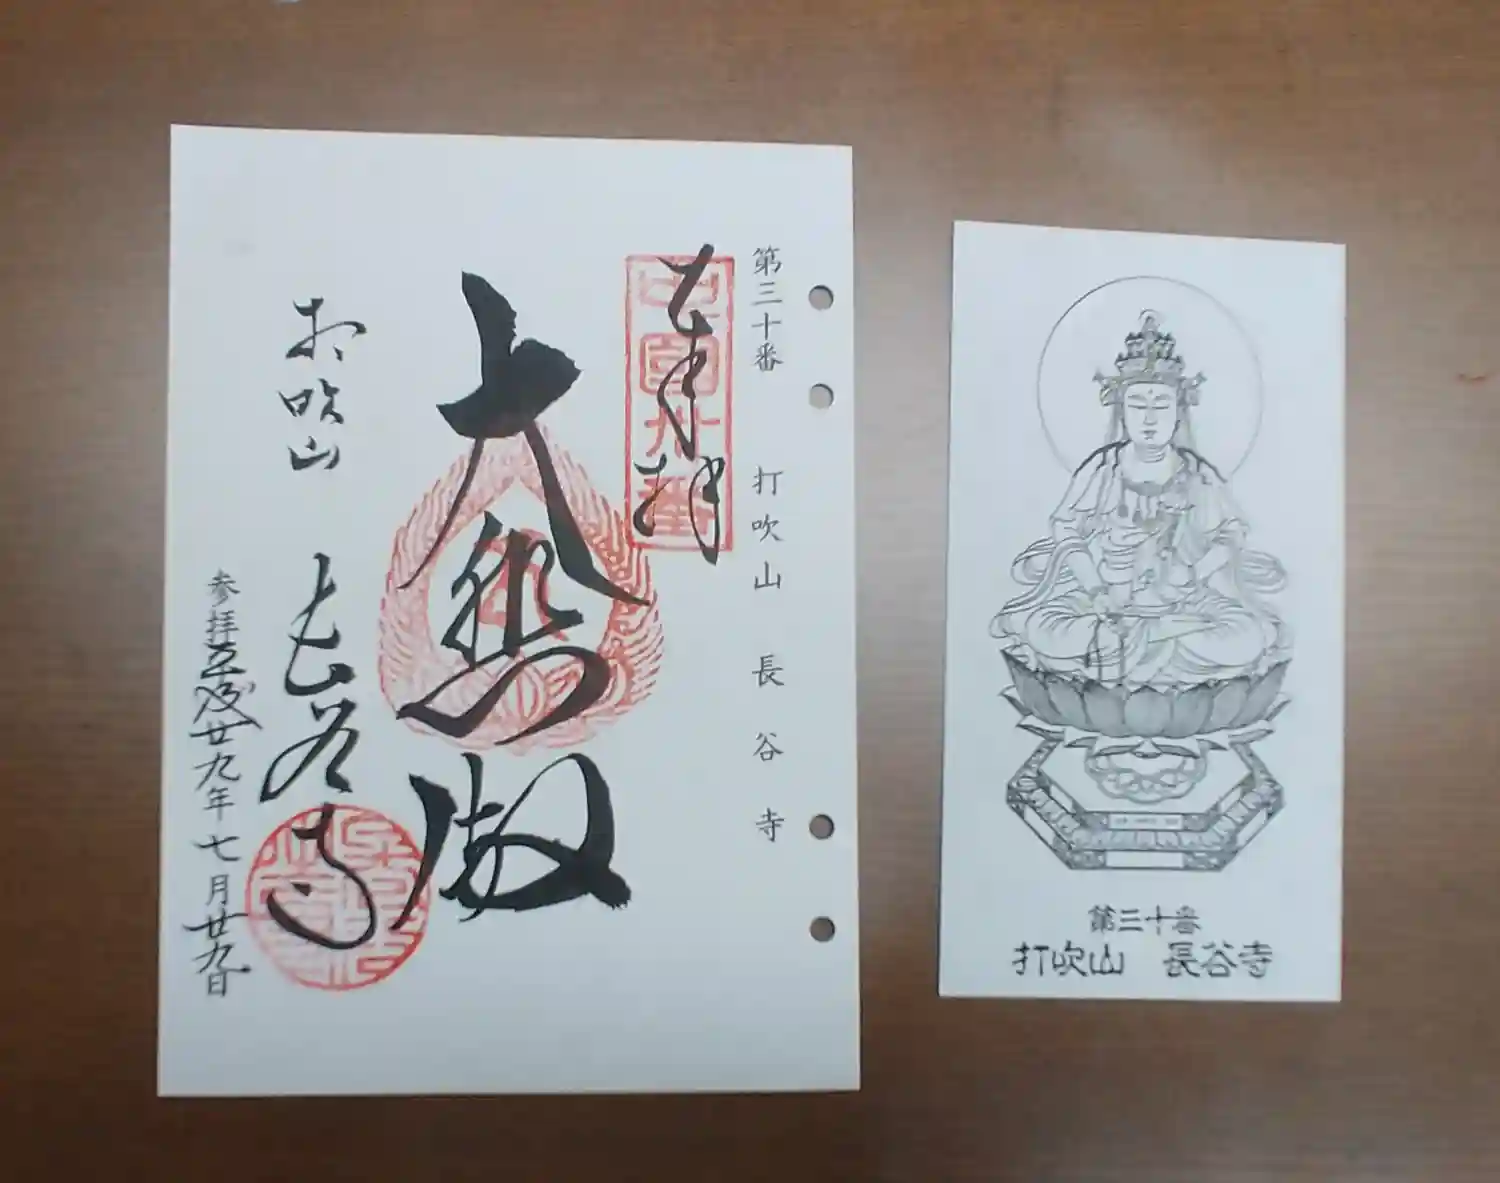 第三十番 打吹山 長谷寺
奉拝
大悲殿
打吹山 長谷寺
廿九年七月廿九日
第三十番
打吹山 長谷寺